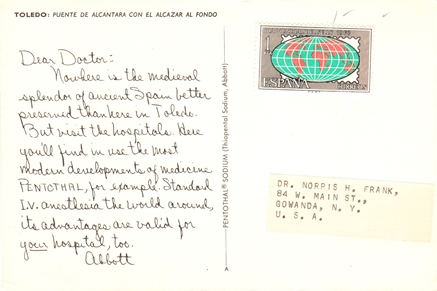 TOLEDO: PUENTE DE ALCANTARA CON EL ALCAZAR AL FONDO
Dear Doctor:
Nowhere is the medieval
splendor of ancient Spain better
preserved than here in Toledo.
But visit the hospitals. Here
you'll find in use the most
modern developments of medicine
PENTOTHAL, for example. Standard
I.V. anesthesia the world around,
its advantages are valid for
your hospital, too.
Abbott
PENTOTHAL® SODIUM (Thiopental Sodium, Abbott)
A
1
ESPAÑA
CORREOS
DR. NORRIS H. FRANK,
84 W. MAIN ST.,
GOWANDA, N. Y.
U. S. A.